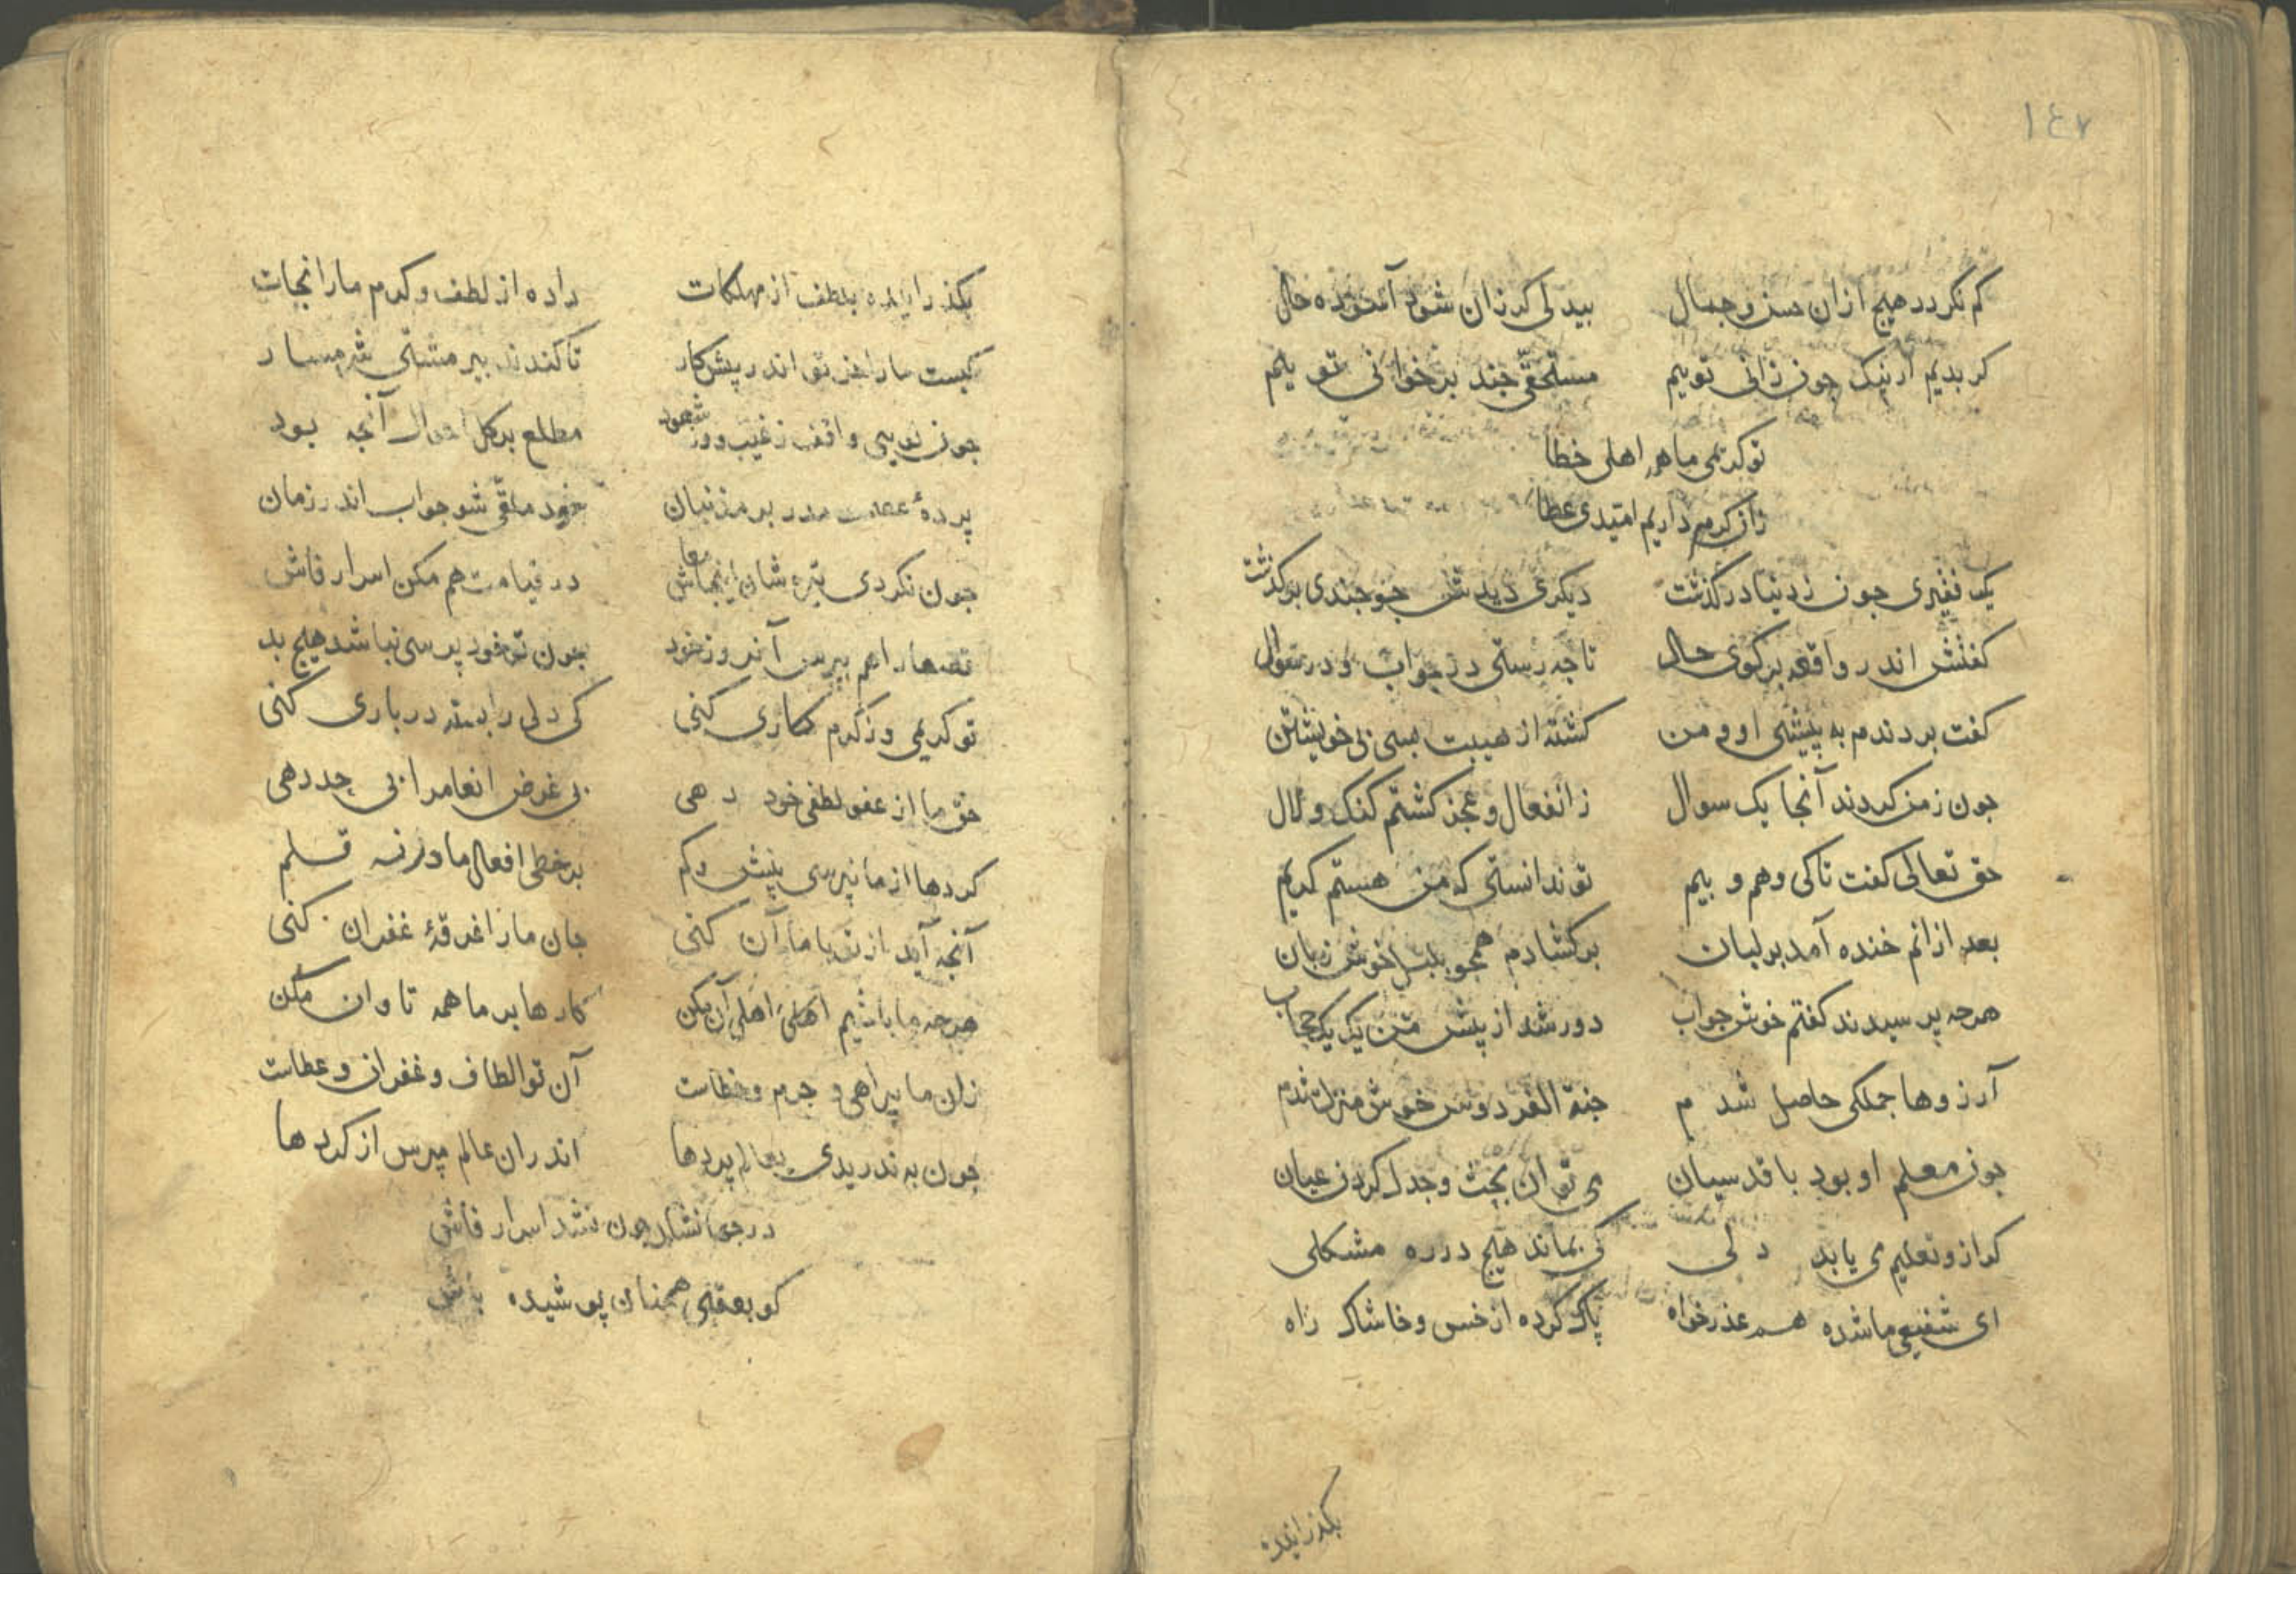 ١٤٧
کم نکردد هیچ ازان حسن و جمال بیدلی کر زان شود آسوده حال
کر بدیم ار نیک چون زانی توییم مستحقی چند بر خوانی تو ییم
تو کریمی ما هم اهلی خطا
زان کرم داریم امتیدی عطا
یک فقیری جون ز دنیا در کذشت دیکری دیدش جو جندی بر کذشت
کفتش اندر واقعه برکوی حال تا جه رستی در جواب و در سؤال
کفت بردندم به پیشی او و من کشته از هیبت بسی بی خویشتن
جون ز من کردند آنجا یک سوال ز انفعال و عجز کشتم کنک و لال
حق تعالی کفت تا کی وهم و بیم تو ندانستی که من هستم کریم
بعد ازانم خنده آمد بر لبان بر کشادم همجو بلبل خوش زبان
هرجه پرسیدند کفتم خوش جواب دور شد از پیش من یک یک حجاب
آرزوها جملکی حاصل شدم جنة الفردوس خوش منزل شدم
جون معلم او بود با قدسیان می توان بحث و جدل کردن عیان
کر ازو تعلیم می یابد دلی کی بماند هیچ در ره مشکلی
ای شفیعی ما شده هم عذر خواه پاک کرده از خس و خاشاک راه
بکذرانیده
بکذرانیده بلطف از مهلکات داده از لطف و کرم مارا نجات
کیست مارا جز تو اندر پیش کار تا کند تدبیر مشتی شرمسار
جون تویی واقف ز غیب و وز شهود مطلع بر کل احوال آنجه بود
پردهٔ عصمت مدر بر مذنبان خود ملقی شو جواب اندر زمان
جون نکردی تیره شان اینجا معاش در قیامت هم مکن اسرار فاش
قصهارا هم بپرس آنروز خود جون تو خود پرسی نباشد هیچ بد
تو کریمی وز کرم کاری کنی کی دلی را بسته در باری کنی
حق ما از عفو لطفی خود دهی بی غرض انعامرا بی حد دهی
کردها از ما نپرسی بیش و کم بر خطی افعال ما در زن قلم
آنجه آید از تو با ما آن کنی جان مارا غرقهٔ غفران کنی
هرجه ما باشیم اهلی اهلی آن مکن کارها بر ما همه تاوان مکن
زان ما بیراهی و جرم و خطاست آن تو الطاف و غفران و عطاست
جون به ندریدی بعالم پردها اندران عالم مپرس از کردها
در جهان شان جون نشد اسرار فاش
کو بعقبی همجنان پوشیده باش